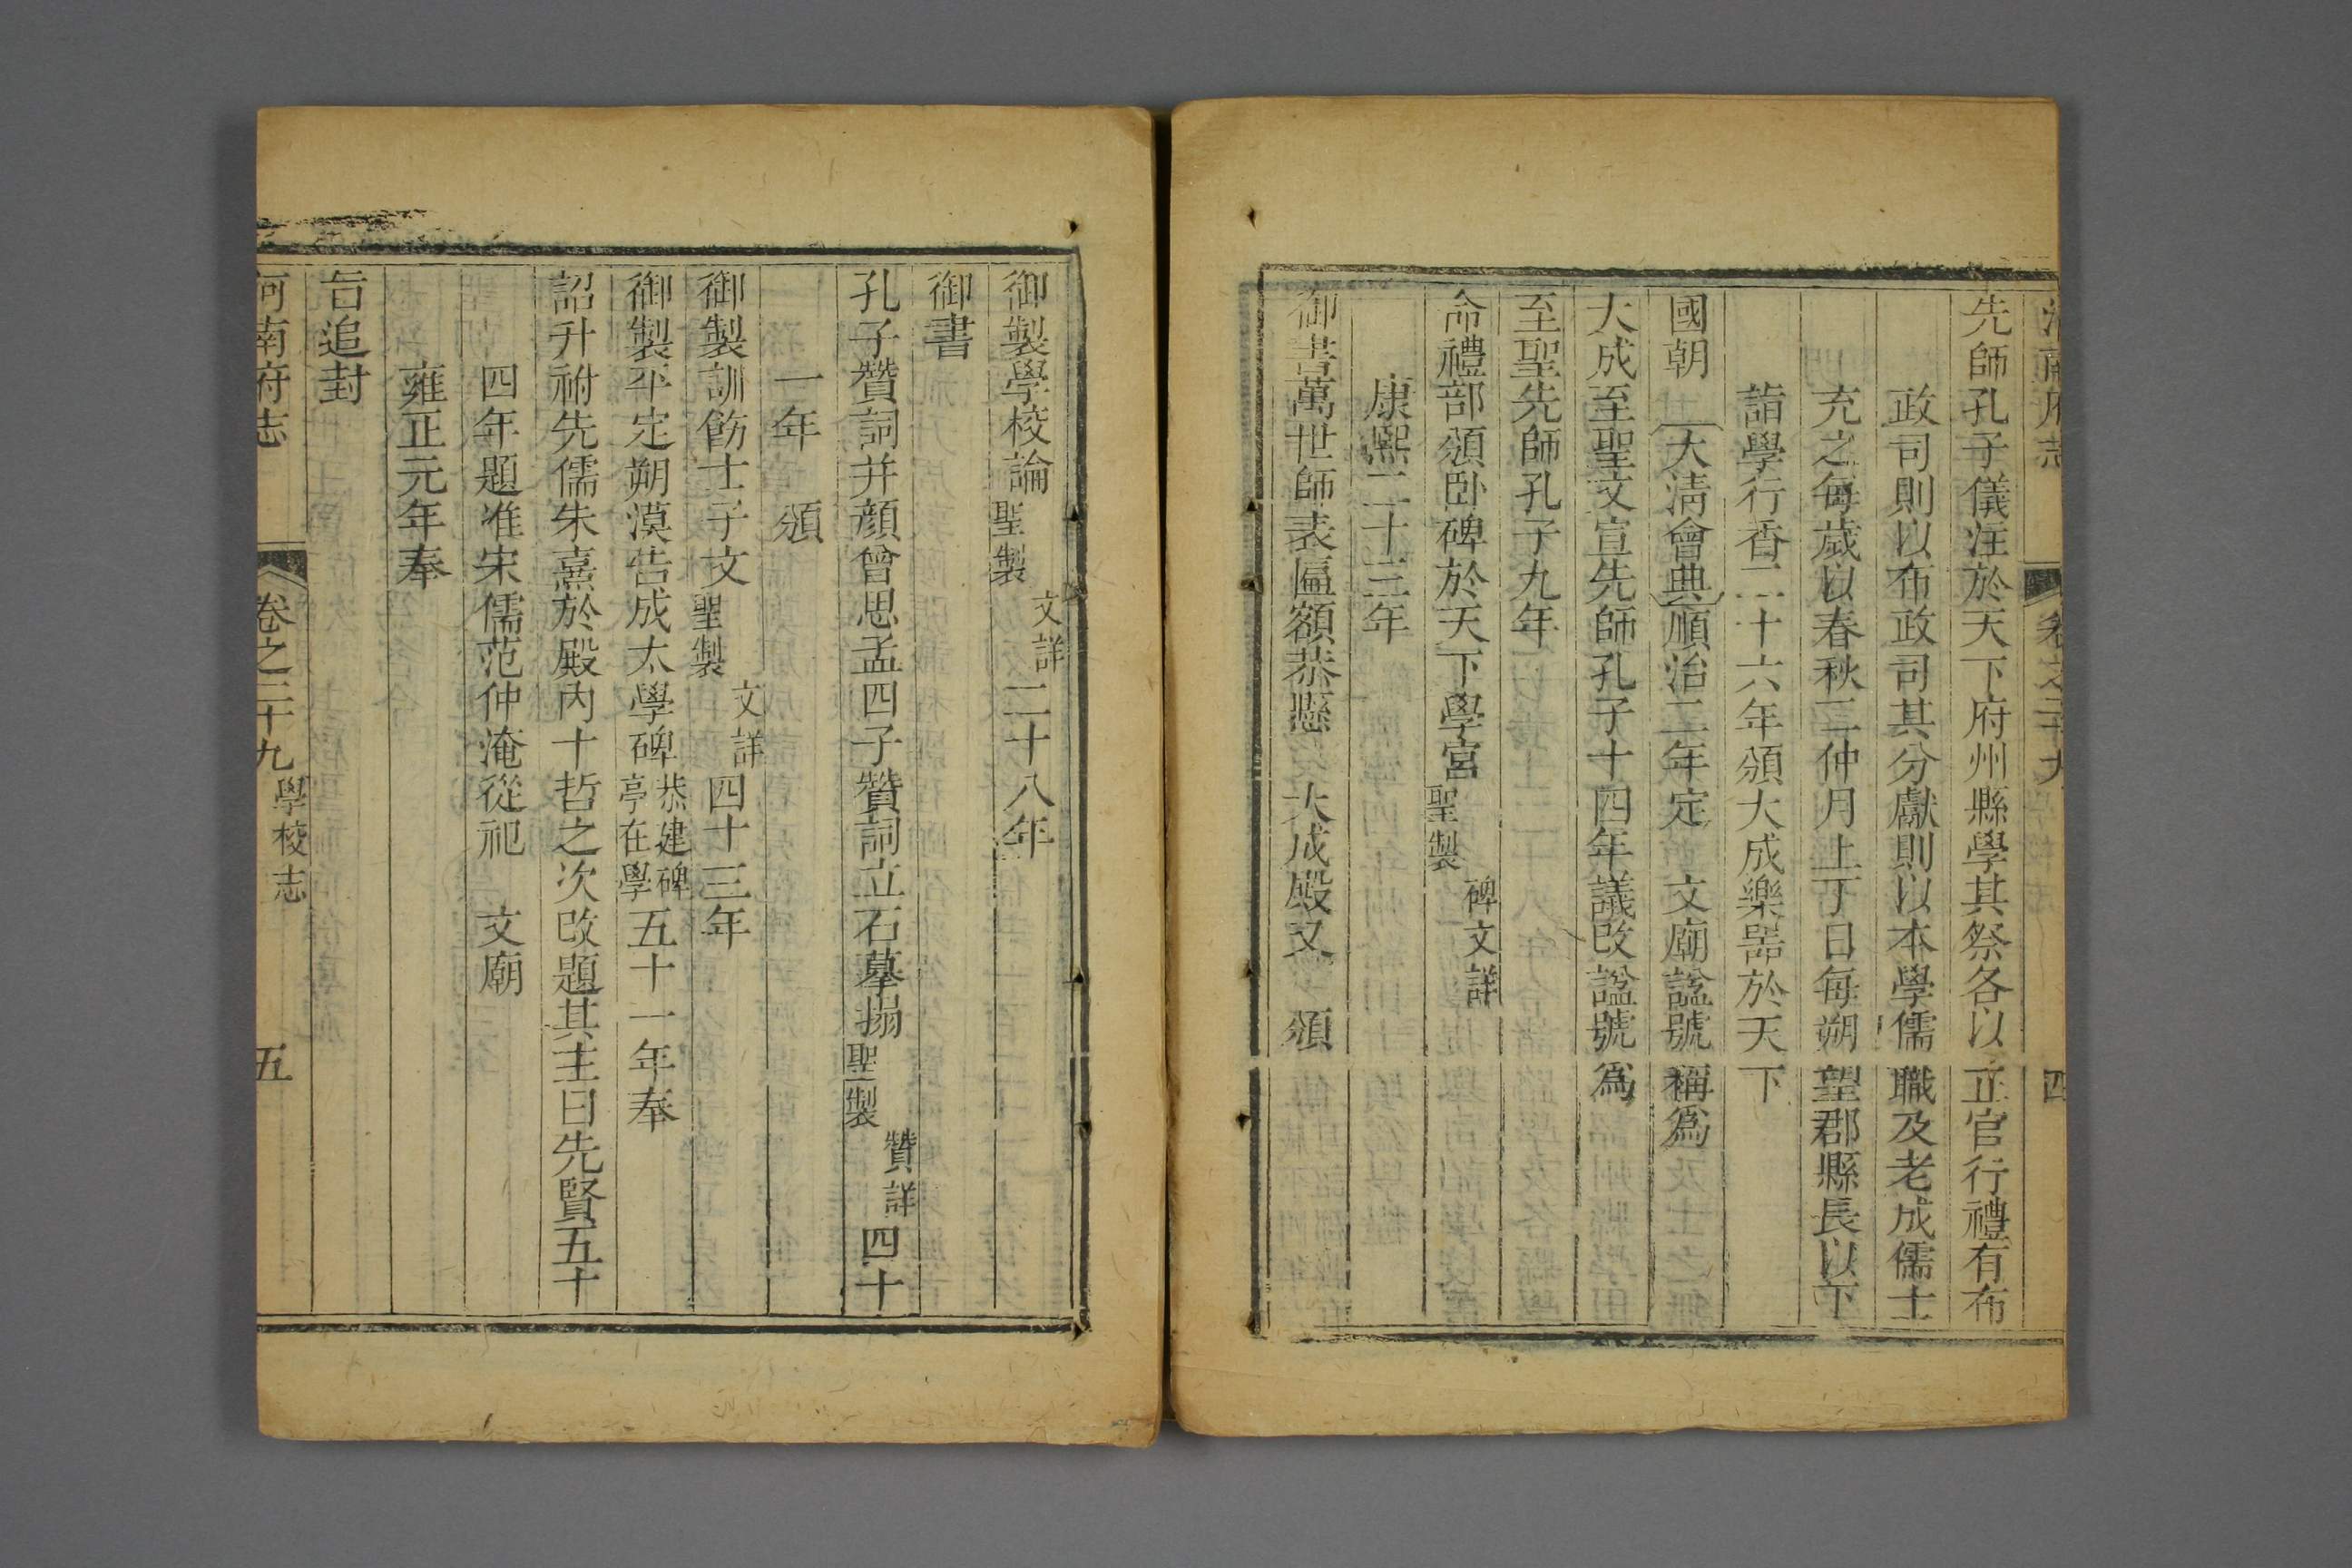 河南府志 卷之二十九 四
先師孔子儀注於天下府州縣學其祭各以正官行禮有布
政司則以布政司其分獻則以本學儒職及老成儒士
充之每歲以春秋二仲月上丁日每朔望郡縣長以下
詣學行香二十六年頒大成樂器於天下
國朝〔大清會典〕順治二年定 文廟諡號稱爲
大成至聖文宣先師孔子十四年議改諡號爲
至聖先師孔子九年
命禮部頒卧碑於天下學宮碑文詳聖製
康熙二十三年
御書萬世師表匾額恭懸 大成殿又 頒
御製學校論文詳聖製二十八年
御書
孔子贊詞并顏曾思孟四子贊詞立石摹搨贊詳聖製四十
一年 頒
御製訓飭士子文文詳聖製四十三年
御製平定朔漠告成太學碑恭建碑亭在學五十一年奉
詔升祔先儒朱熹於殿內十哲之次改題其主曰先賢五十
四年題准宋儒范仲淹從祀 文廟
雍正元年奉
旨追封
河南府志 卷之二十九 學校志 五